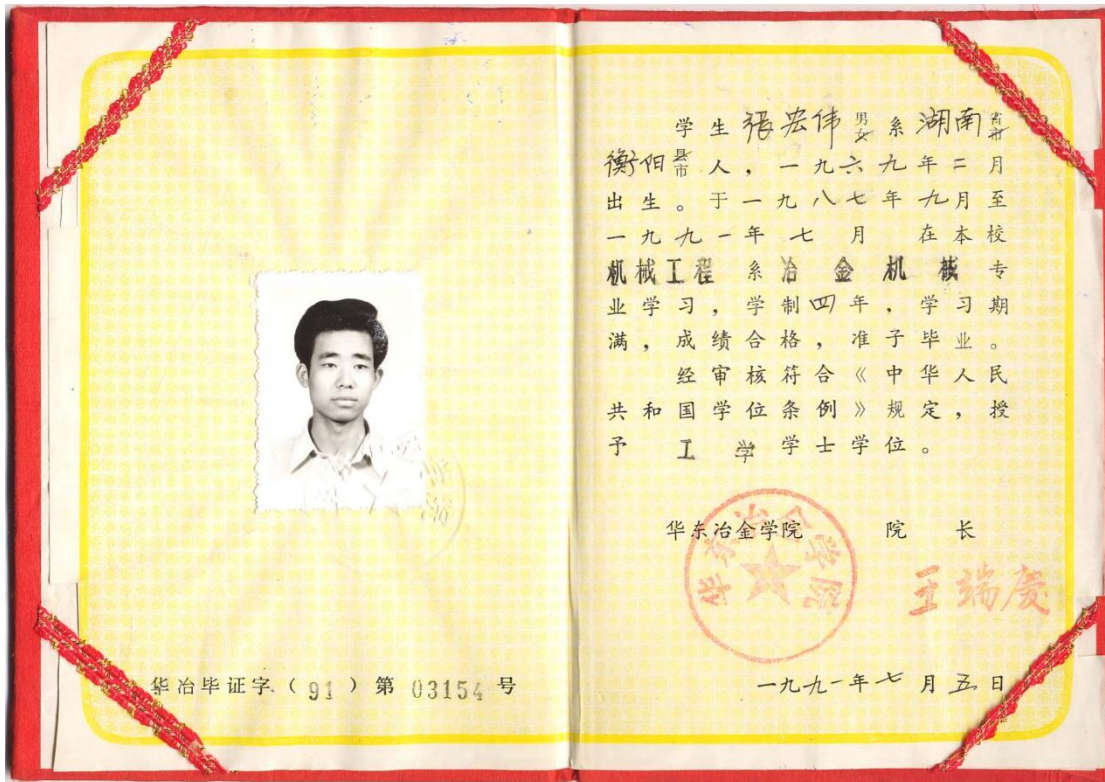 华冶毕证字.（91）第 03154 号
学生 张宏伟 男女 系 湖南 省市
衡阳 县市 人，一九六九年二月
出生。于一九八七年九月至
一九九一年七月 在本校
机械工程 系 冶金机械 专
业学习，学制四年，学习期
满，成绩合格，准予毕业。
经审核符合《中华人民
共和国学位条例》规定，授
予 工学 学士学位。
华东冶金学院 院长
华东冶金学院
王端庆
一九九一年七月五日